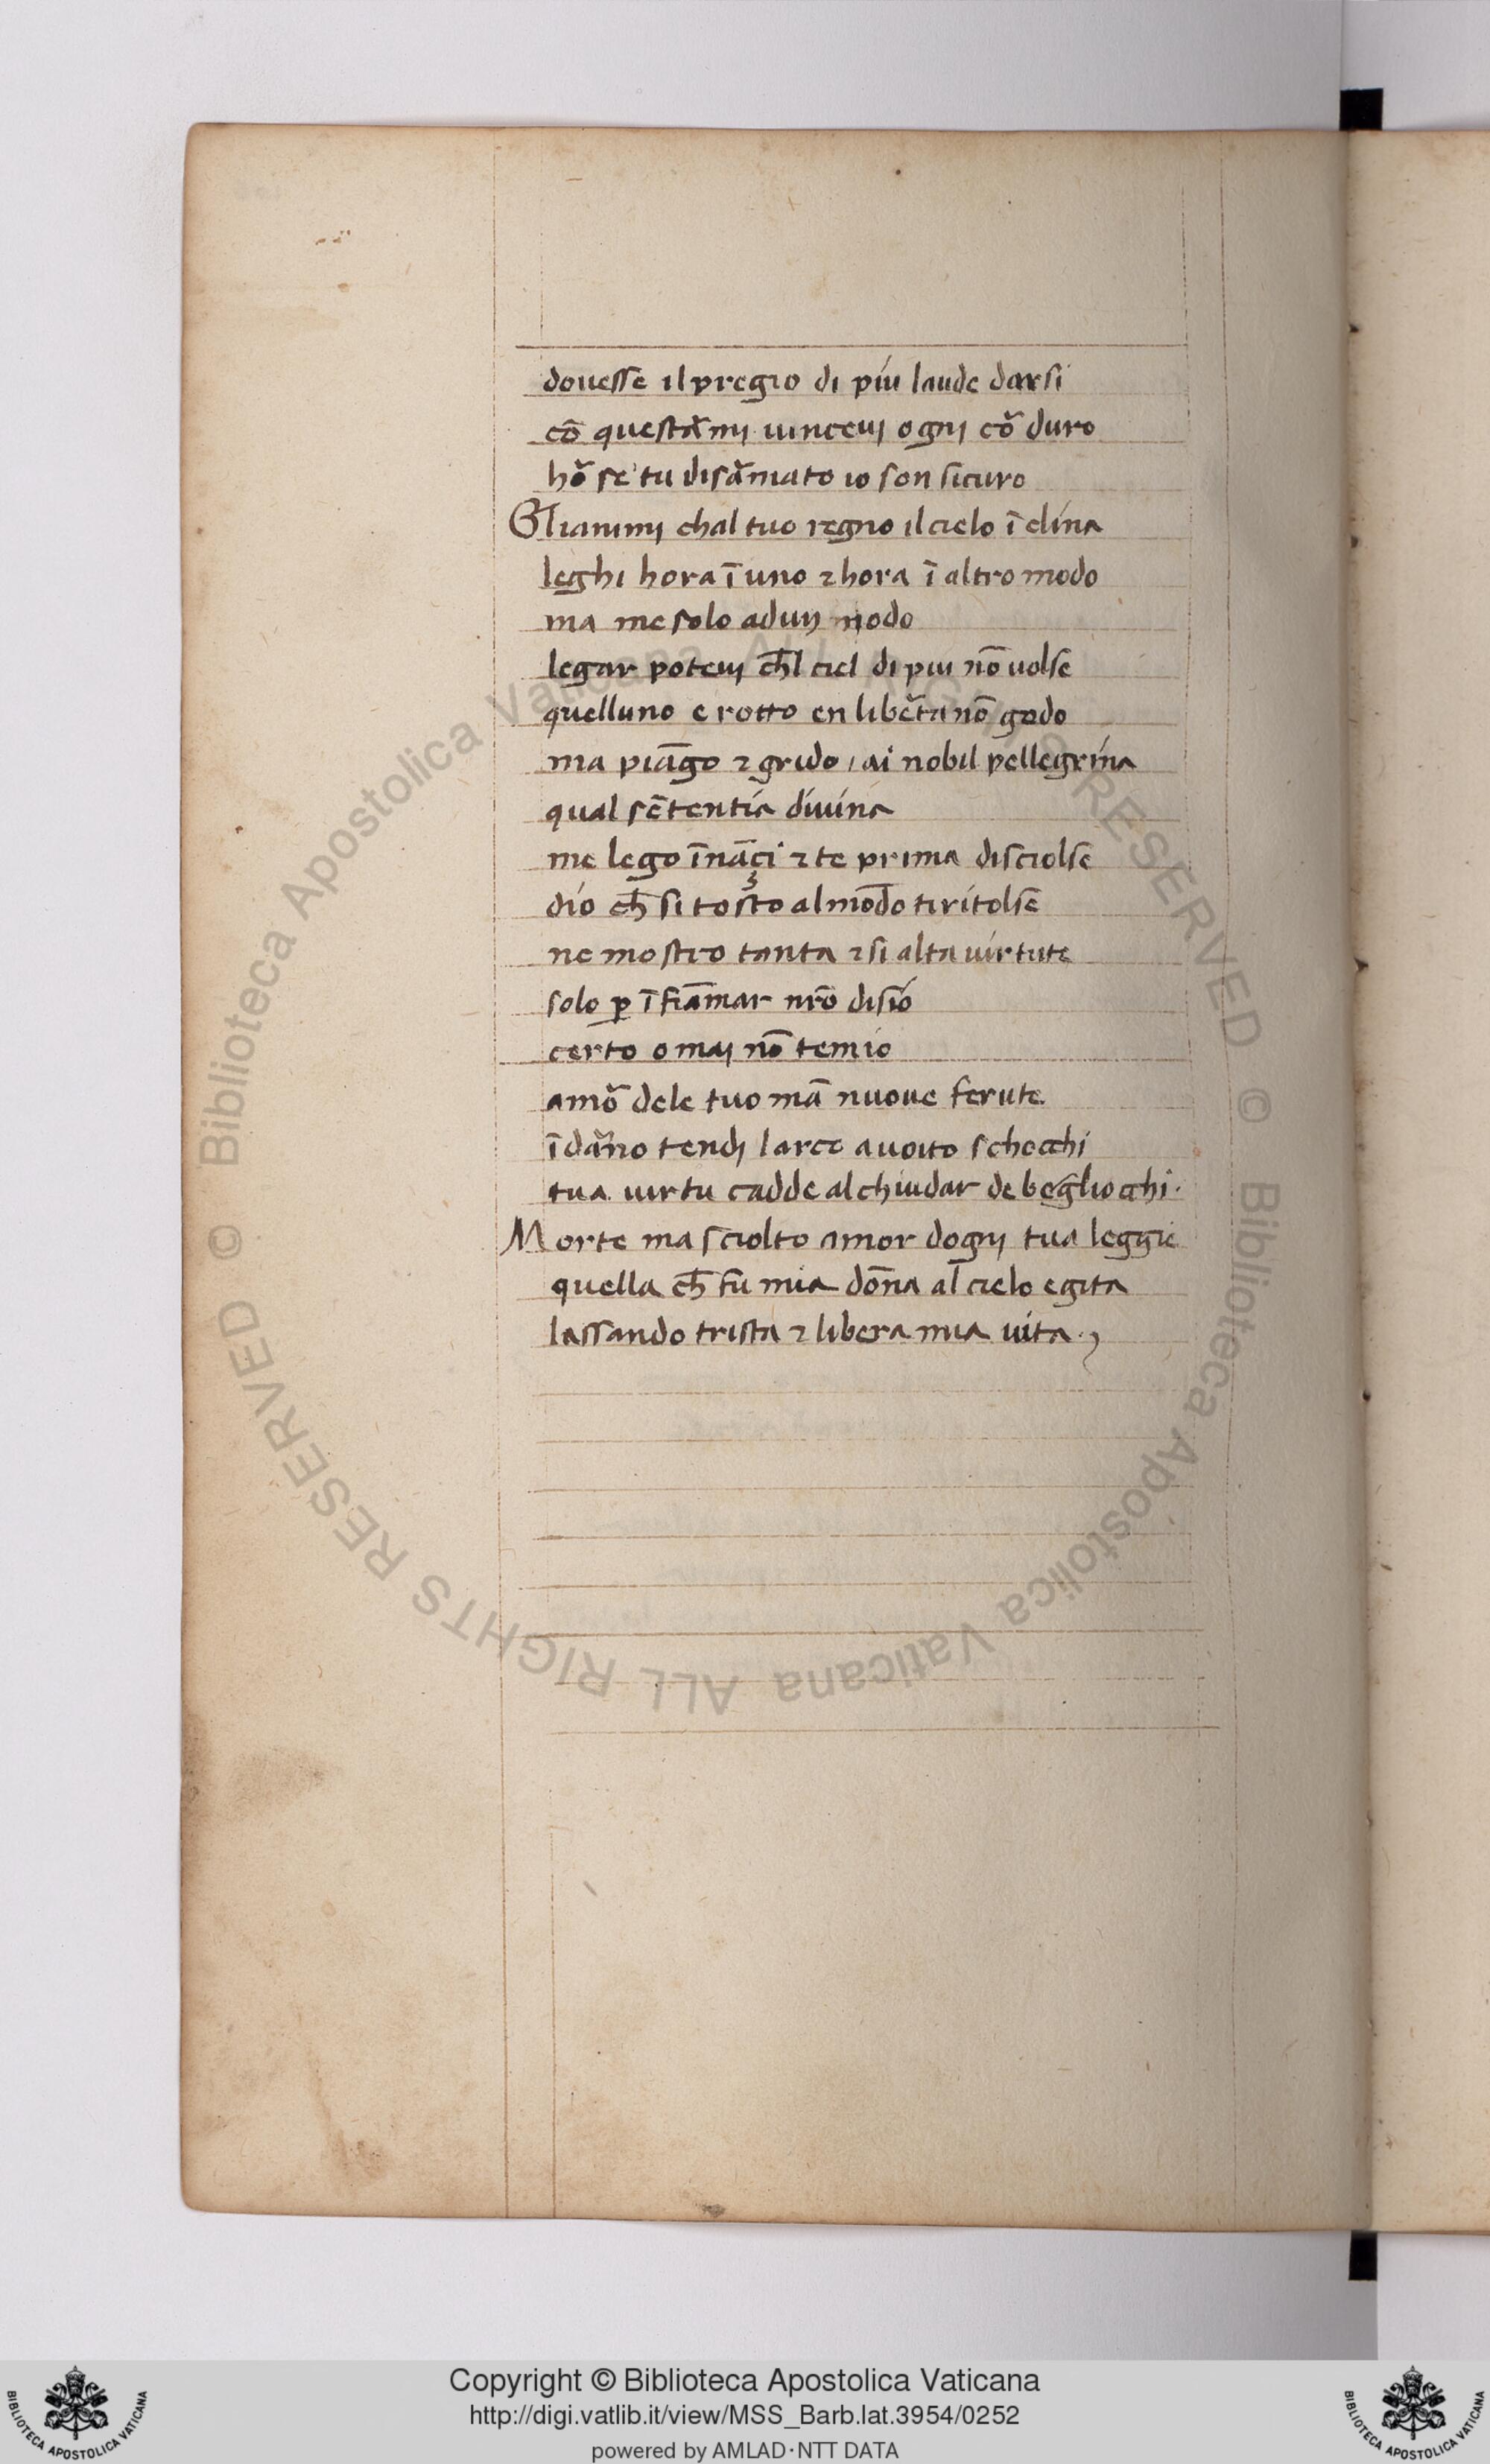 douesse il pregio di piu laude darsi
cō quest ař̄mi uincevi ogni cor̆ duro
hor̆ se tu disar̆mato io son sicuro
Gli animi chal tuo regno il cielo ī clina
leghi hora ī uno ⁊ hora ī altro modo
ma me solo ad un nodo
legar potevi ch̄l ciel di piu nō uolse
quelluno e rotto en liber̆ta nō godo
ma piāgo ⁊ grido / ai nobil pellegrina
qual sētentia diuina
me lego īnāçi ⁊ te prima disciolse
dio ch̄ si tosto al mōdo ti ritolse
ne mostro tanta ⁊ si alta uirtute
solo ꝑ ī fiāmar nr̄o disio
certo omai nō temio
amor̆ dele tuo mā nuoue ferute
ī dar̆no tendi larco a uoito schocchi
tua uirtu cadde al chiudar de beglıocchi ·
Morte ma sciolto amor dogni tua leggie
quella ch̄ fu mia dōna al cielo e gita
lassando trista ⁊ libera mia uita ·,
© Biblioteca Apostolica Vaticana ALL RIGHTS RESERVED
© Biblioteca Apostolica Vaticana ALL RIGHTS RESERVED
Copyright © Biblioteca Apostolica Vaticana
http://digi.vatlib.it/view/MSS_Barb.lat.3954/0252
powered by AMLAD·NTT DATA
BIBLIOTECA APOSTOLICA VATICANA
BIBLIOTECA APOSTOLICA VATICANA